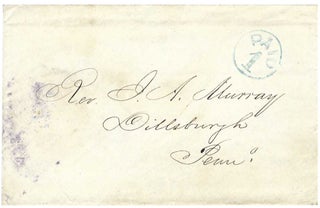 PAID
Rev. J. A. Murray
Dillsburgh
Penn.